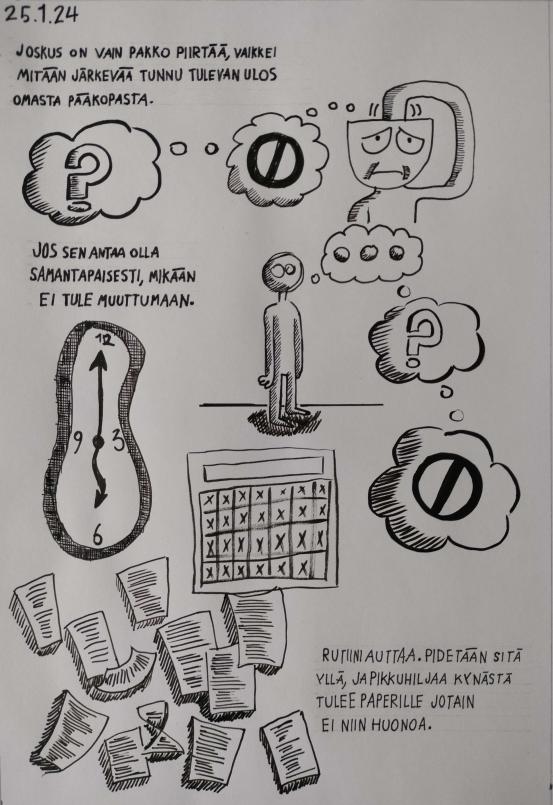 25.1.24
JOSKUS ON VAIN PAKKO PIIRTÄÄ, VAIKKEI
MITÄÄN JÄRKEVÄÄ TUNNU TULEVAN ULOS
OMASTA PÄÄKOPASTA.
?
JOS SEN ANTAA OLLA
SAMANTAPAISESTI, MIKÄÄN
EI TULE MUUTTUMAAN.
?
12
9 3
6
X X X X X X X
X X X X X X X
X X X X X X X
X X X X X X
RUTIINI AUTTAA. PIDETÄÄN SITÄ
YLLÄ, JA PIKKUHILJAA KYNÄSTÄ
TULEE PAPERILLE JOTAIN
EI NIIN HUONOA.